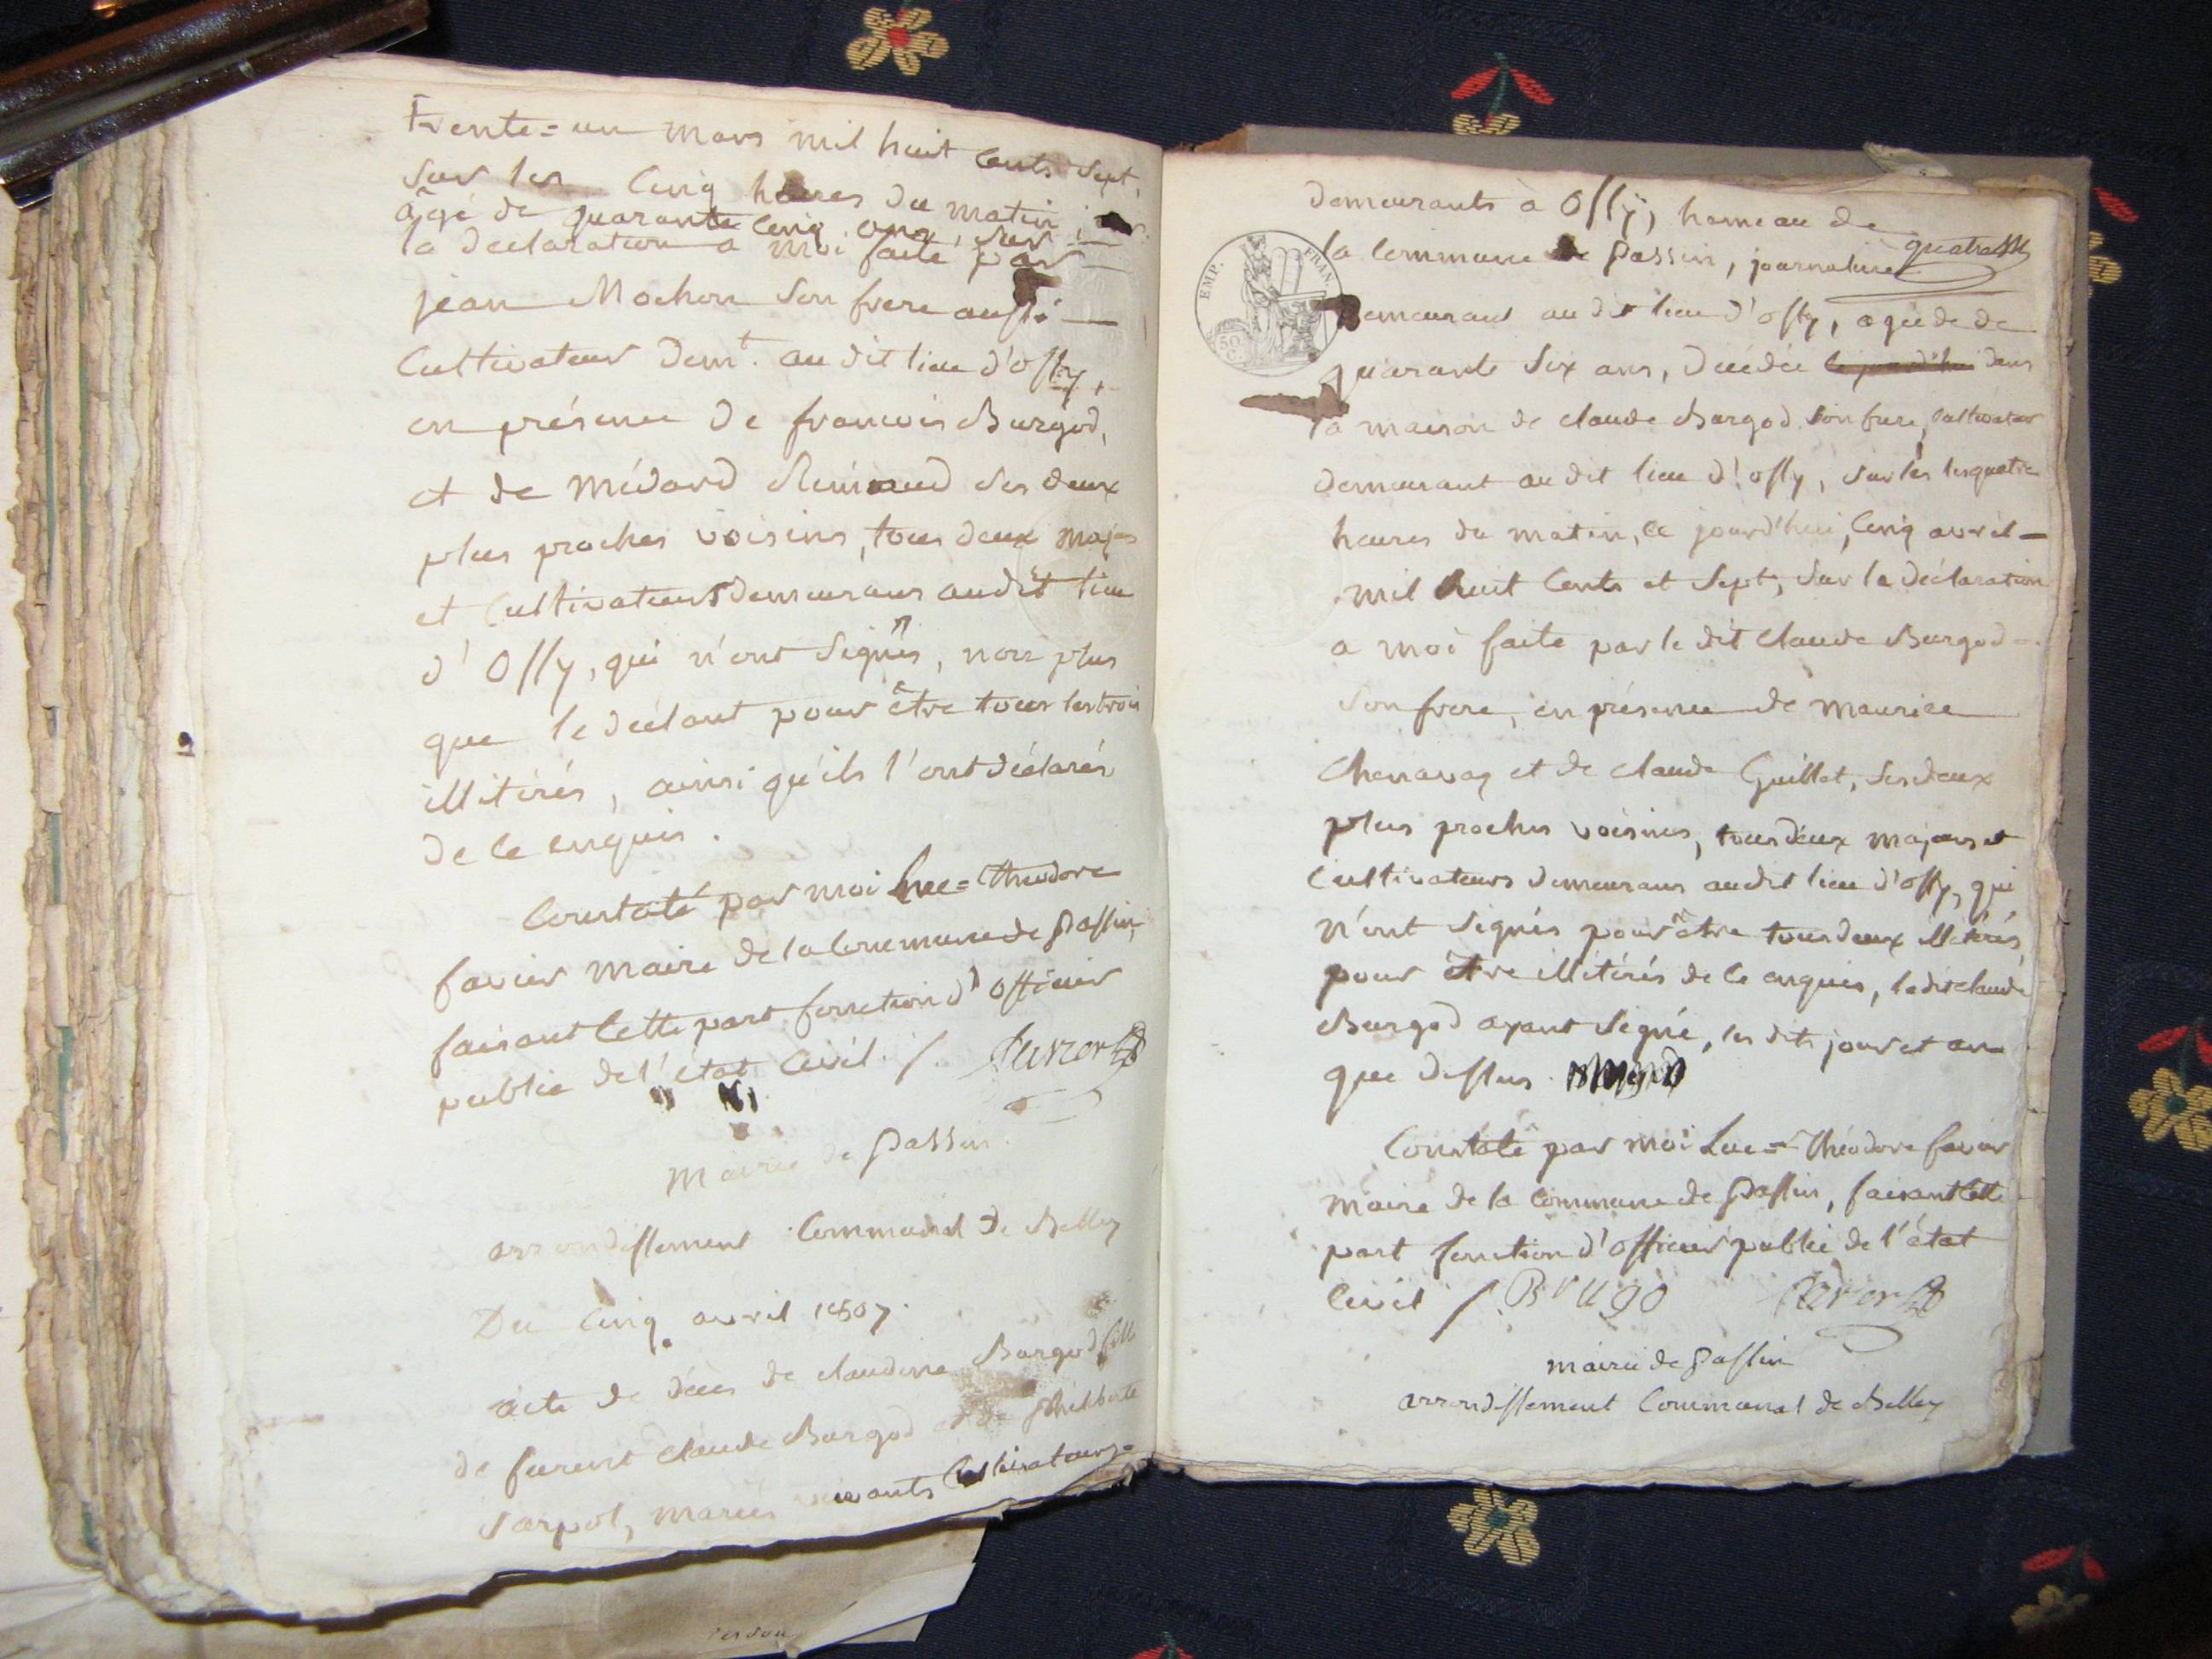 trente=un mars mil huit cents sept,
sur les cinq heures du matin,
âgé de quarante cinq ans, sur
la declaration a moi faite par
jean Mochon son frere aussi
Cultivateur demt. au dit lieu d'Ossy,
en présence de francois Burgod,
et de Médard ses deux
plus proches voisins, tous deux majors
et Cultivateurs demeurans audit lieu
d'Ossy, qui n'ont signés, non plus
que le déclant pour être tous les trois
illitérés, ainsi qu'ils l'ont déclarés
de ce enquis.
Constaté par moi Luc=Théodore
favier maire de la Commune de Passin,
faisant cette part fonction d'officier
public de l'état Civil /. favier
Mairie de Passin.
arrondissement Communal de Belley
Du Cinq avril 1807.
acte de décès de claudine Burgod fille
de furent claude Burgod et de philiberte
Sarpol, mariés vivants Cultivateurs
demeurants à Ossy, hameau de
la Commune de Passin, journalière
quatre
EMP. FRAN.
50 C.
Demeurant au dit lieu d'Ossy, agée de de
quarante six ans, decédée ce jourd'hui dans
la maison de claude Burgod son frere, Cultivateur
demeurant au dit lieu d'Ossy, sur les les quatre
heures du matin, ce jourd'hui, Cinq avril
mil huit Cents et Sept, sur la déclaration
a moi faite par le dit Claude Burgod
son frere, en présence de maurice
Chenavaz et de claude Guillot, ses deux
plus proches voisins, tous deux majors et
Cultivateurs demeurans audit lieu d'Ossy, qui
n'ont signés pour être tous deux illitérés,
pour être illitérés de ce enquis, ledit claude
Burgod ayant signé, les dits jour et an
que dessus.
Constaté par moi Luc=Théodore favier
maire de la commune de Passin, faisant cette
part fonction d'officier public de l'état
Civil /. Brugo favier
mairie de Passin
arrondissement Communal de Belley